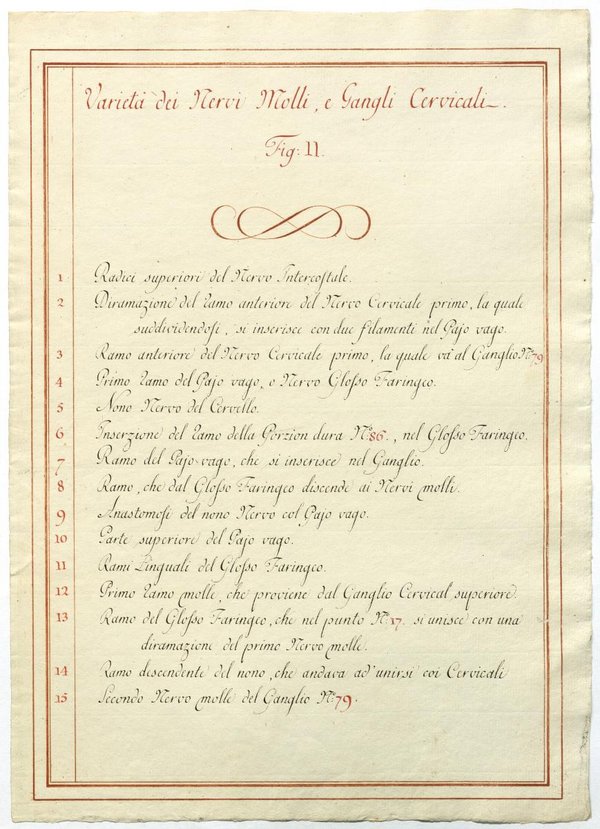 Varietà dei Nervi Molli, e Gangli Cervicali.
Fig: 11.
1 Radici superiori del Nervo Intercostale.
2 Diramazione del ramo anteriore del Nervo Cervicale primo, la quale
suddividendosi, si inserisce con due filamenti nel Pajo vago.
3 Ramo anteriore del Nervo Cervicale primo, la quale và al Ganglio N.º 79
4 Primo ramo del Pajo vago, o Nervo Glosso Faringeo.
5 Nono Nervo del Cervello.
6 Inserzione del ramo della Porzion dura N.º 86., nel Glosso Faringeo.
7 Ramo del Pajo vago, che si inserisce nel Ganglio.
8 Ramo, che dal Glosso Faringeo discende ai Nervi molli.
9 Anastomosi del nono Nervo col Pajo vago.
10 Parte superiore del Pajo vago.
11 Rami Linguali del Glosso Faringeo.
12 Primo ramo molle, che proviene dal Ganglio Cervical' superiore.
13 Ramo del Glosso Faringeo, che nel punto N.º 17. si unisce con una
diramazione del primo Nervo molle.
14 Ramo descendente del nono, che andava ad' unirsi coi Cervicali
15 Secondo Nervo molle del Ganglio N.º 79.